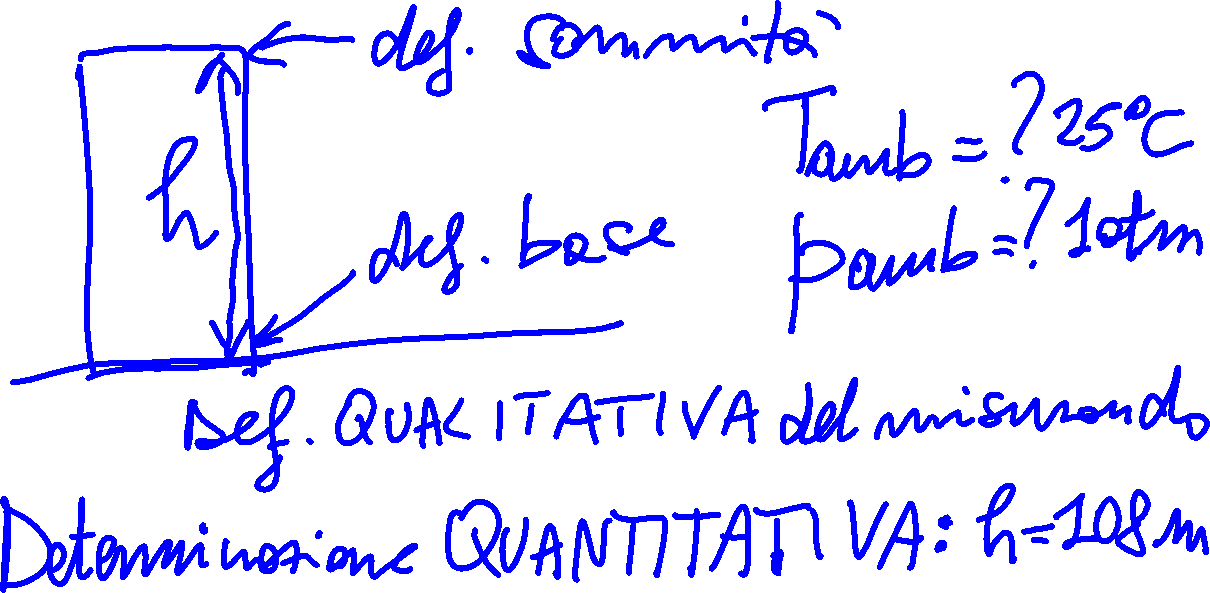 def. sommità
Tamb = ? 25°C
h
def. base
pamb = ? 1atm
Def. QUALITATIVA del misurando
Determinazione QUANTITATIVA: h=108m